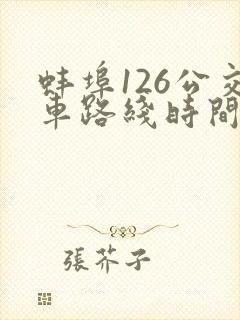 蚌埠126公交
車路綫時間
張芥子